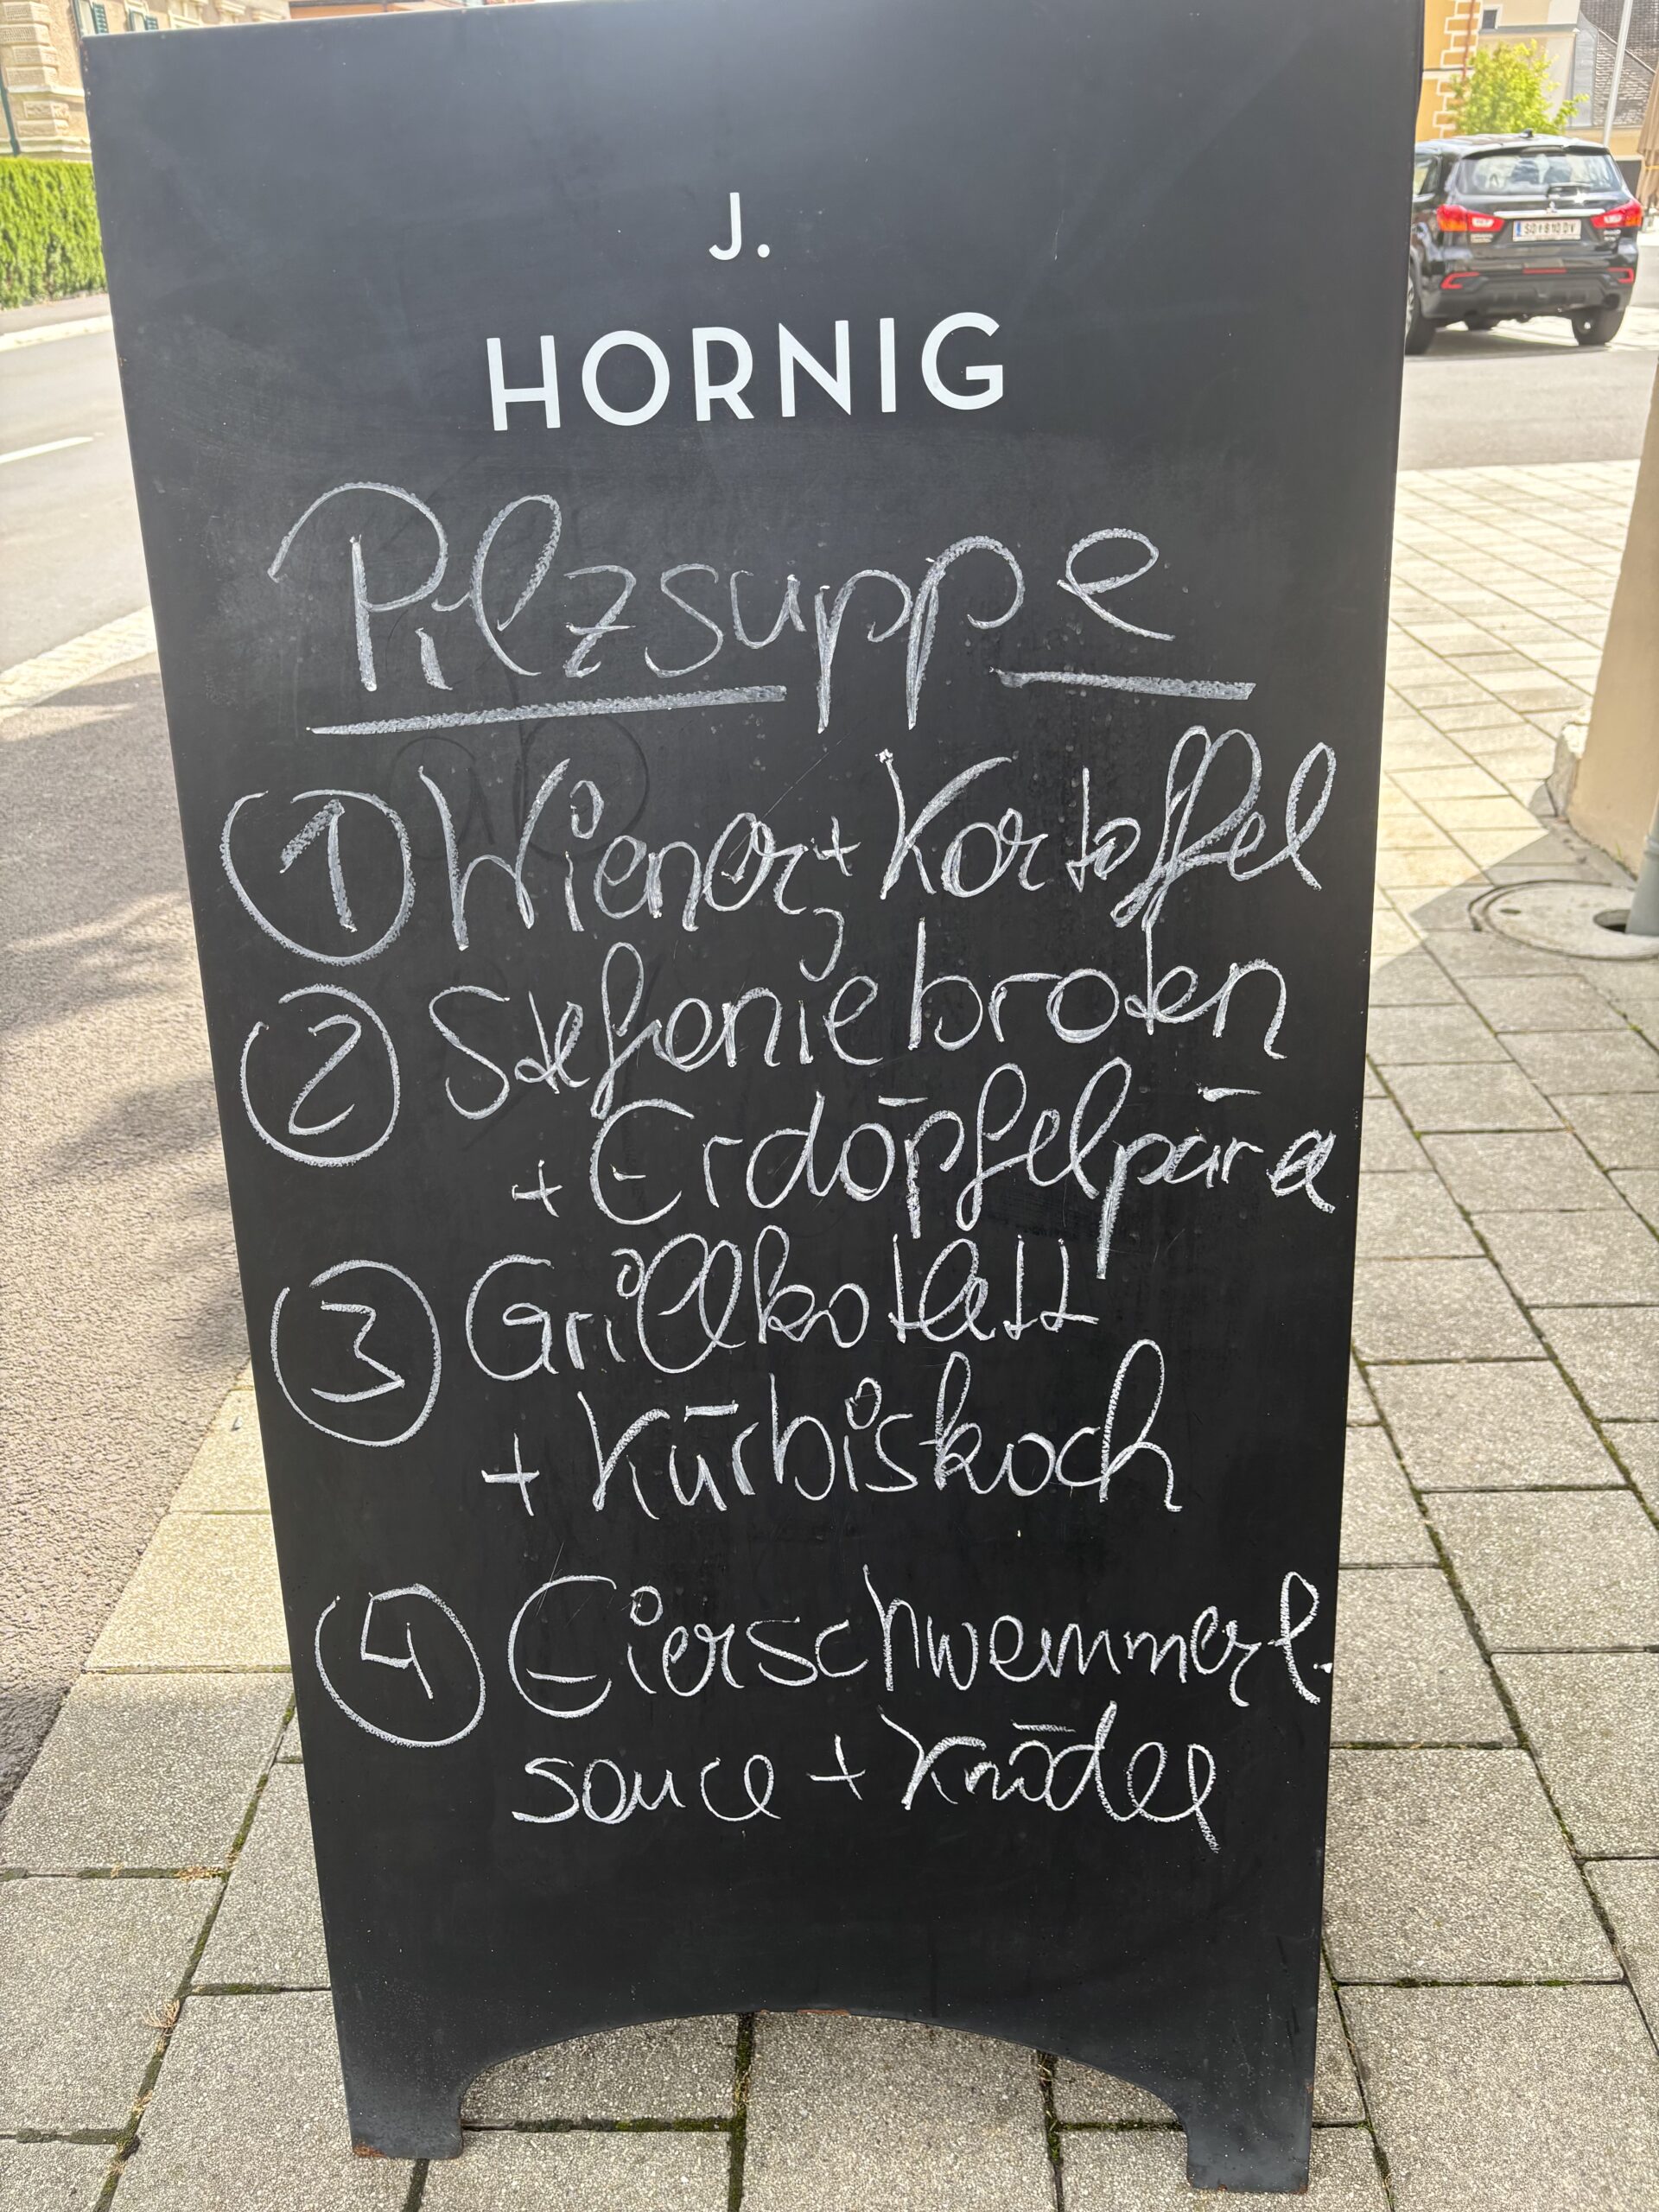 J.
HORNIG
Pilzsuppe
1 Wiener, + Kartoffel
2 Stefaniebraten
+ Erdöpfelpüre
3 Grillkotlett
+ Kürbiskoch
4 Eierschwammerl-
sauce + Knödel